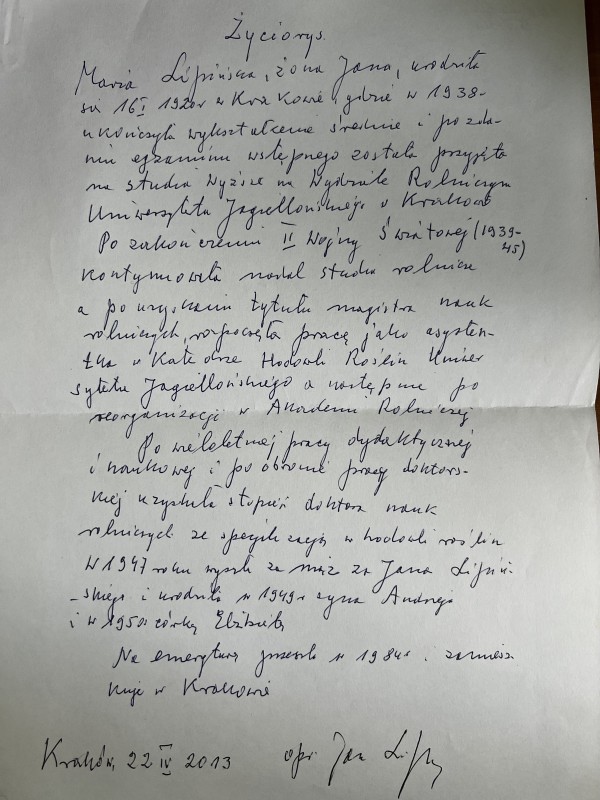 Życiorys.
Maria Lipińska, żona Jana, urodziła
się 16 I 1920r w Krakowie, gdzie w 1938-
ukończyła wykształcenie średnie i po zda-
niu egzaminu wstępnego została przyjęta
na studia Wyższe na Wydziale Rolniczym
Uniwersytetu Jagiellońskiego w Krakowie
Po zakończeniu II Wojny Światowej (1939-
45)
kontynuowała nadal studia rolnicze
a po uzyskaniu tytułu magistra nauk
rolniczych, rozpoczęła pracę jako asysten-
tka w Katedrze Hodowli Roślin Uniwer
sytetu Jagiellońskiego a następnie po
reorganizacji w Akademii Rolniczej
Po wieloletniej pracy dydaktycznej
i naukowej i po obronie pracy doktors-
kiej uzyskała stopień doktora nauk
rolniczych ze specjalizacją w hodowli roślin
W 1947 roku wyszła za mąż za Jana Lipiń-
-skiego i urodziła w 1949r syna Andrzeja
i w 1950r córkę Elżbietę
Na emeryturę przeszła w 1984r i zamiesz
kuje w Krakowie
Kraków, 22 IV 2013 opr. Jan